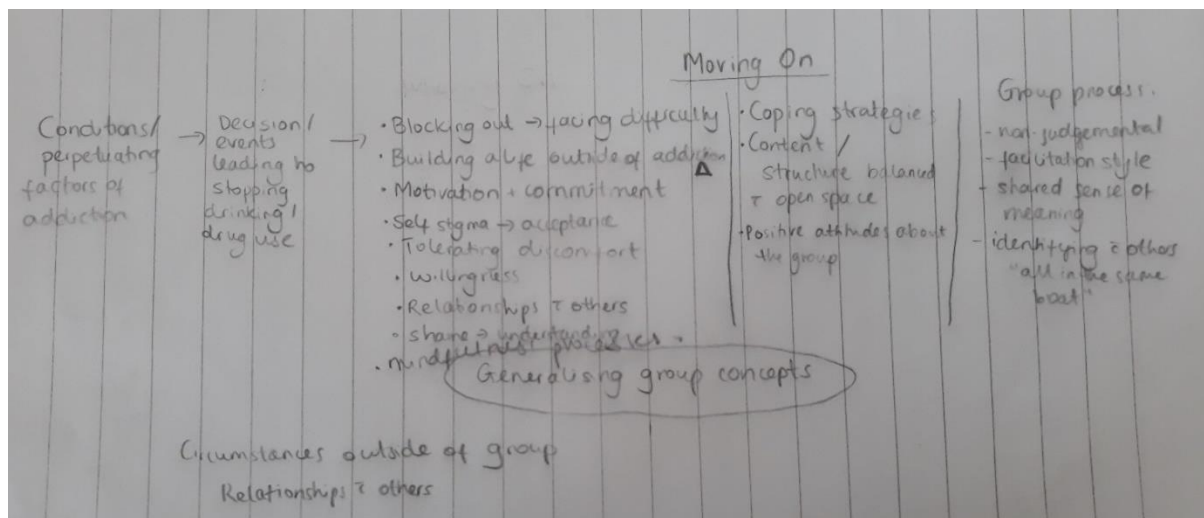 Moving On
Conditions/
perpetuating
factors of
addiction
→
Decision/
events
leading to
stopping
drinking/
drug use
→
• Blocking out → facing difficulty
• Building a life outside of addiction
Δ
• Motivation + commitment
• Self stigma → acceptance
• Tolerating discomfort
• Willingness
• Relationships c̄ others
- shame → understanding
• mindfulness
• Coping strategies
• Content /
structure balanced
c̄ open space
• Positive attitudes about
the group
Group process.
- non-judgemental
- facilitation style
- shared sense of
meaning
- identifying c̄ others
"all in the same
boat"
Generalising group concepts
Circumstances outside of group
Relationships c̄ others